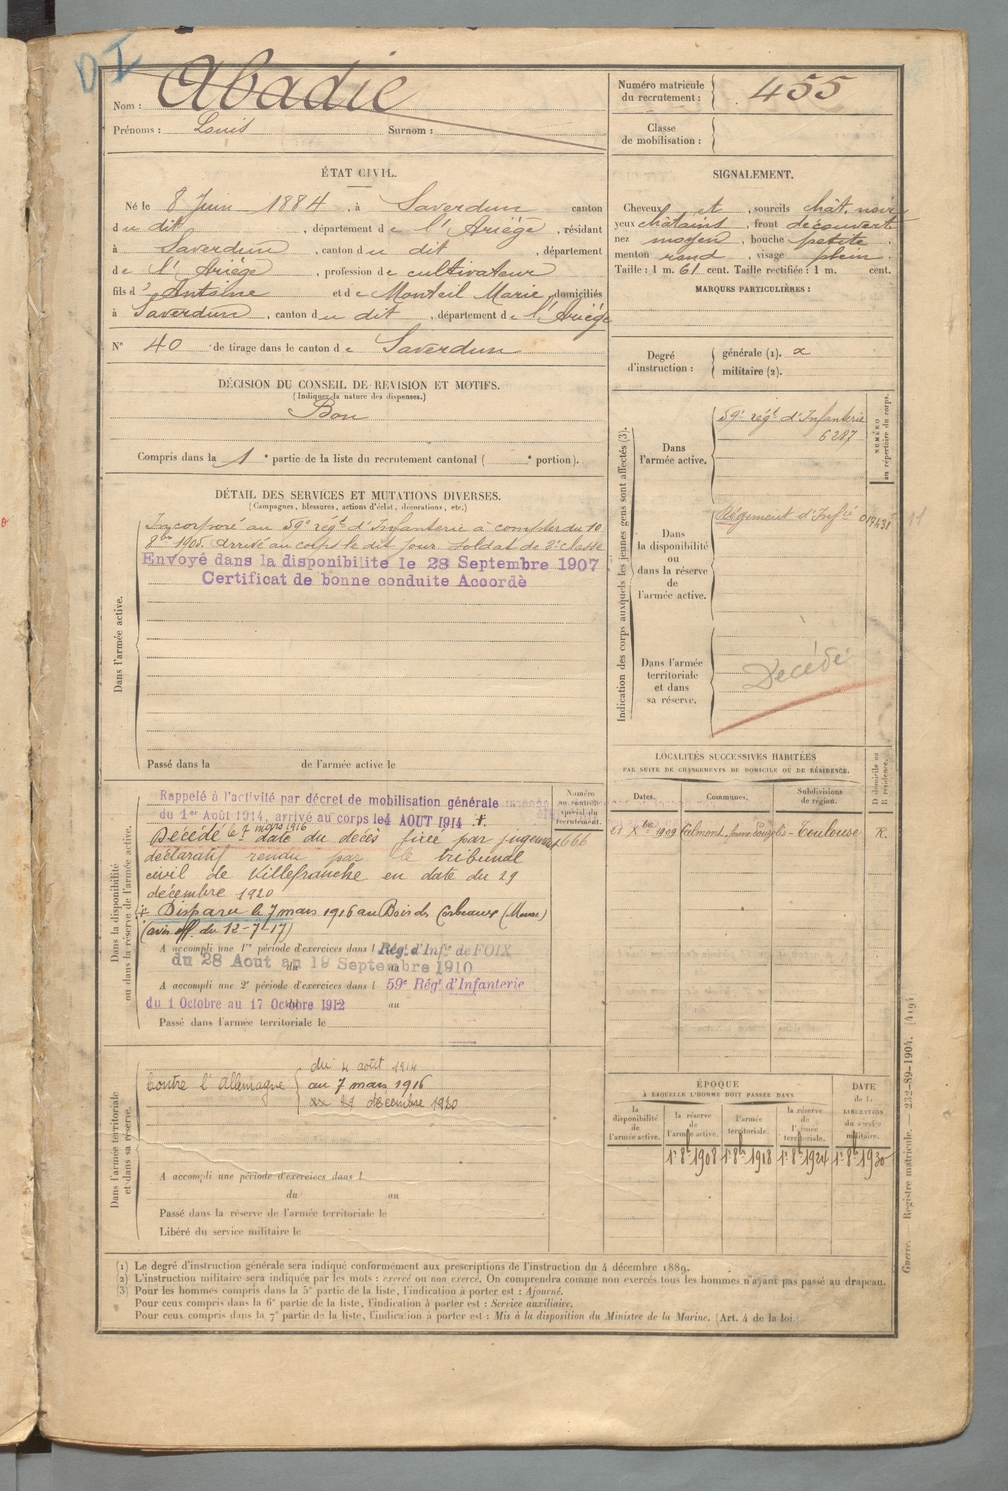 DI
Nom : Abadie
Prénoms : Louis Surnom :
Numéro matricule du recrutement : 455
Classe de mobilisation :
ÉTAT CIVIL.
Né le 8 Juin 1884, à Saverdun canton
du dit, département de l'Ariège, résidant
à Saverdun, canton du dit, département
de l'Ariège, profession de cultivateur
fils d'Antoine et de Monteil Marie, domiciliés
à Saverdun, canton du dit, département de l'Ariège
N° 40 de tirage dans le canton de Saverdun
SIGNALEMENT.
Cheveux et, sourcils chât. noir
yeux châtains, front découvert
nez moyen, bouche petite
menton rond, visage plein.
Taille : 1 m. 61 cent. Taille rectifiée : 1 m. cent.
MARQUES PARTICULIÈRES :
Degré d'instruction : générale (1). 2
militaire (2).
DÉCISION DU CONSEIL DE REVISION ET MOTIFS.
(Indiquer la nature des dispenses.)
Bon
Compris dans la 1e partie de la liste du recrutement cantonal ( e portion).
DÉTAIL DES SERVICES ET MUTATIONS DIVERSES.
(Campagnes, blessures, actions d'éclat, décorations, etc.)
Dans l'armée active.
Incorporé au 59e régt d'Infanterie à compter du 10
8bre 1905. arrivé au corps le dit jour soldat de 2e classe
Envoyé dans la disponibilité le 28 Septembre 1907
Certificat de bonne conduite Accordé
Passé dans la de l'armée active le
Indication des corps auxquels les jeunes gens sont affectés (3).
NUMÉRO au répertoire du corps.
Dans l'armée active.
59e régt d'Infanterie
6287
Dans la disponibilité ou dans la réserve de l'armée active.
Régiment d'Infie 017431
11
Dans l'armée territoriale et dans sa réserve.
Décédé
Dans la disponibilité ou dans la réserve de l'armée active.
Numéro au contrôle spécial du recrutement.
Rappelé à l'activité par décret de mobilisation générale
du 1er Août 1914, arrivé au corps le 4 AOUT 1914 +.
Décédé le 7 mars 1916 date du décès fixée par jugement
1666
déclaratif rendu par le tribunal
civil de Villefranche en date du 29
décembre 1920
+ Disparu le 7 mars 1916 au Bois des Corbeaux (Meuse)
(avis off. du 12-7-17)
A accompli une 1re période d'exercices dans l Rég. d'Infie de FOIX
du 28 Aout au 19 Septembre 1910
A accompli une 2e période d'exercices dans l 59e Régt d'Infanterie
du 1 Octobre au 17 Octobre 1912 au
Passé dans l'armée territoriale le
LOCALITÉS SUCCESSIVES HABITÉES
PAR SUITE DE CHANGEMENTS DE DOMICILE OU DE RÉSIDENCE.
Dates. Communes. Subdivisions de région. D domicile ou R résidence.
21 Xbre 1909 Toulouse R.
Dans l'armée territoriale et dans sa réserve.
Contre l'Allemagne du 4 août 1914
au 7 mars 1916
29 décembre 1920
A accompli une période d'exercices dans l
du au
Passé dans la réserve de l'armée territoriale le
Libéré du service militaire le
ÉPOQUE
À LAQUELLE L'HOMME DOIT PASSER DANS
DATE de la LIBÉRATION du service militaire.
la disponibilité de l'armée active. la réserve de l'armée active. l'armée territoriale. la réserve de l'armée territoriale.
1er 8bre 1908 1er 8bre 1918 1er 8bre 1924 1er 8bre 1930
(1) Le degré d'instruction générale sera indiqué conformément aux prescriptions de l'instruction du 4 décembre 1889.
(2) L'instruction militaire sera indiquée par les mots : exercé ou non exercé. On comprendra comme non exercés tous les hommes n'ayant pas passé au drapeau.
(3) Pour les hommes compris dans la 5e partie de la liste, l'indication à porter est : Ajourné.
Pour ceux compris dans la 6e partie de la liste, l'indication à porter est : Service auxiliaire.
Pour ceux compris dans la 7e partie de la liste, l'indication à porter est : Mis à la disposition du Ministre de la Marine. (Art. 4 de la loi.
Guerre. Registre matricule. 232-89-1904. [419]